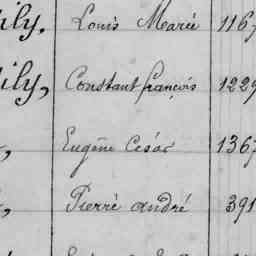 ily, Louis Marie 1167
ily, Constant françois 1229
, Eugène César 1367
, Pierre andré 391